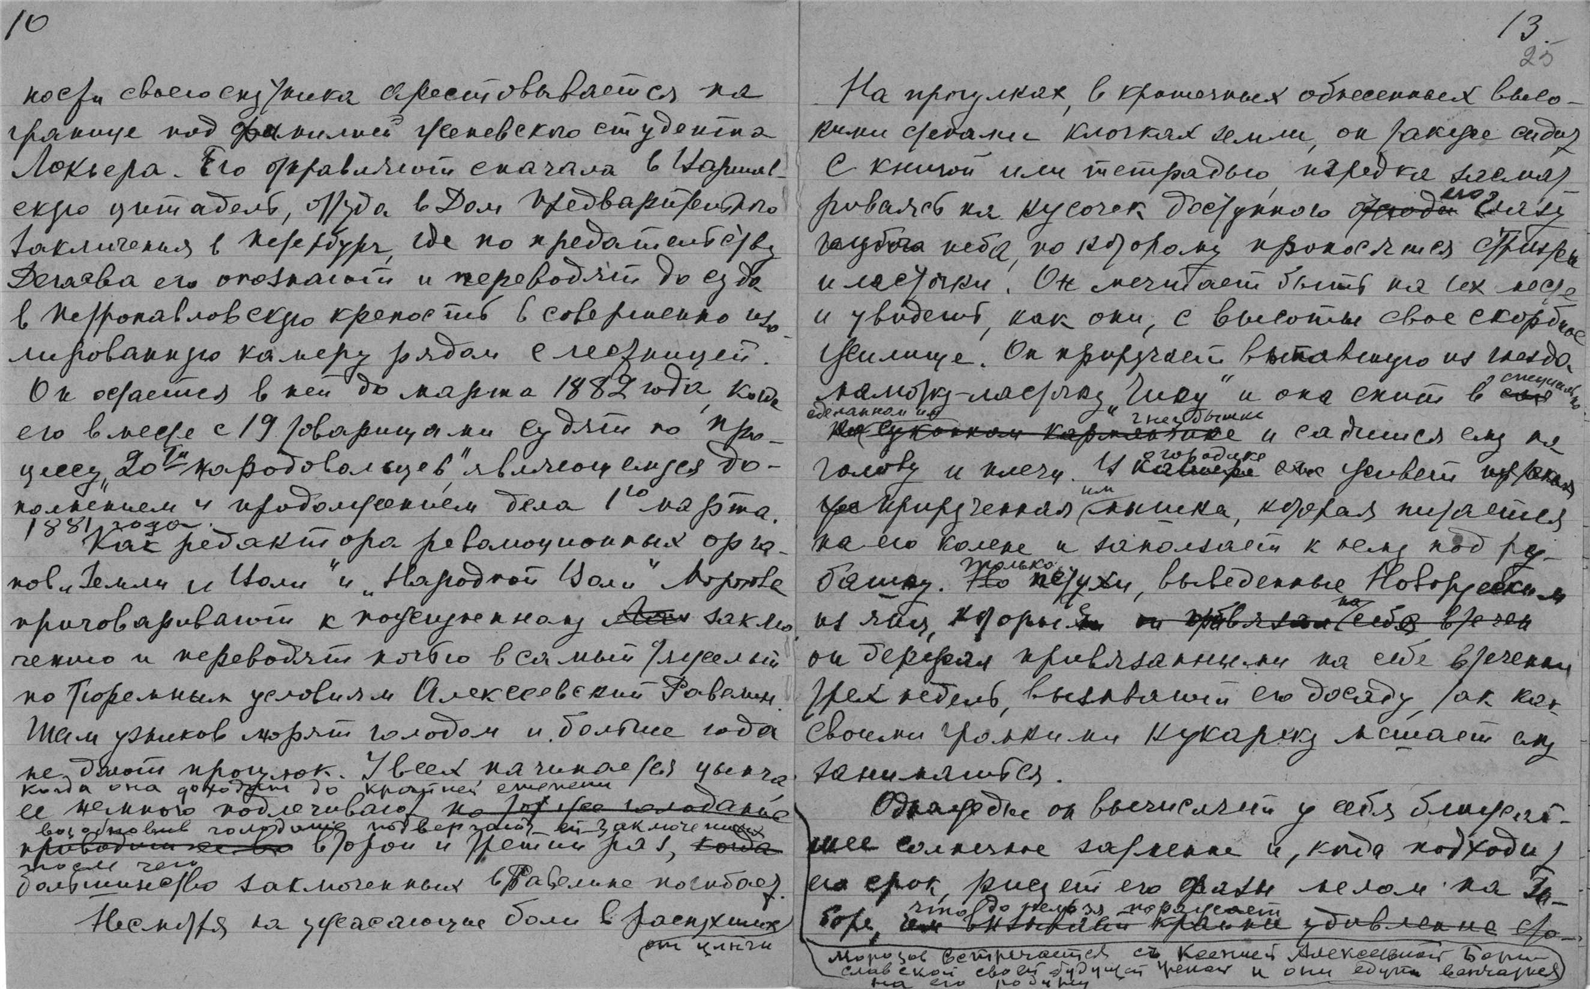 10
ности своего спутника арестовывается на
границе под фамилией женевского студента
Локьера. Его отправляют сначала в Варшав-
скую цитадель, оттуда в Дом предварительного
заключения в Петербург, где по предательству
Дегаева его опознают и переводят до суда
в Петропавловскую крепость в совершенно изо-
лированную камеру рядом с лестницей.
Он остается в ней до марта 1882 года, когда
его вместе с 19 товарищами судят по про-
цессу „20ти народовольцев", являющемуся до-
полнением и продолжением дела 1го марта
1881 года.
Как редактора революционных орга-
нов „Земли и Воли" и „Народной Воли" Морозова
приговаривают к пожизненному заклю-
чению и переводят ночью в самый тяжелый
по тюремным условиям Алексеевский Равелин.
Там узников морят голодом и больше года
не дают прогулок. У всех начинается цынга.
когда она доходит до крайней степени
ее немного подлечивают, но тот же голодание
возобновив голодание подвергают ей заключенных
второй и третий раз, когда
после чего
большинство заключенных в Равелине погибает.
Несмотря на ужасающие боли в распухших
от цынги
13.
25
На прогулках, в крошечных обнесенных высо-
кими стенами клочках земли, он также сидит
с книгой или тетрадью, изредка засмат-
риваясь на кусочек доступного его глазу
голубого неба, по которому проносятся стрижи
и ласточки. Он мечтает быть на их месте
и увидеть, как они, с высоты свое скорбное
жилище. Он приручает выпавшую из гнезда
самочку-ласточку „Чику" и она спит в специально
сделанном им гнездышке
и садится ему на
голову и плечи. В городике живет
прирученная им мышка, которая питается
на его колене и заползает к нему под ру-
башку. Только петухи, выведенные Новорусским
из яиц, которые
на себе в течен
он держал привязанными на себе в течении
трех недель, вызывают его досаду, так как
своими громкими кукареку мешает ему
заниматься.
Однажды он вычисляет у себя ближай-
шее солнечное затмение и, когда подходит
его срок, рисует его фазы мелом на за-
боре, что до нельзя поражает
Морозов встречается с Ксенией Алексеевной Бори-
славской своей будущей женой и они едут венчаться
на его родину